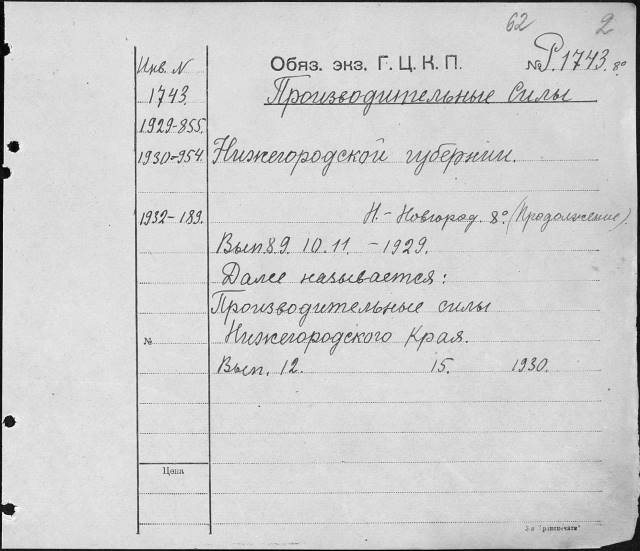 62
2
Инв. N
Обяз. экз. Г. Ц. К. П.
№ Р.1743. 8°
1743.
Производительные Силы
1929-855.
1930-954.
Нижегородской губернии.
1932-189.
Н.-Новгород. 8° (Продолжение).
Вып. 8 9. 10. 11. - 1929.
Далее называется:
Производительные силы
№
Нижегородского Края.
Вып. 12. 15. 1930.
Цена